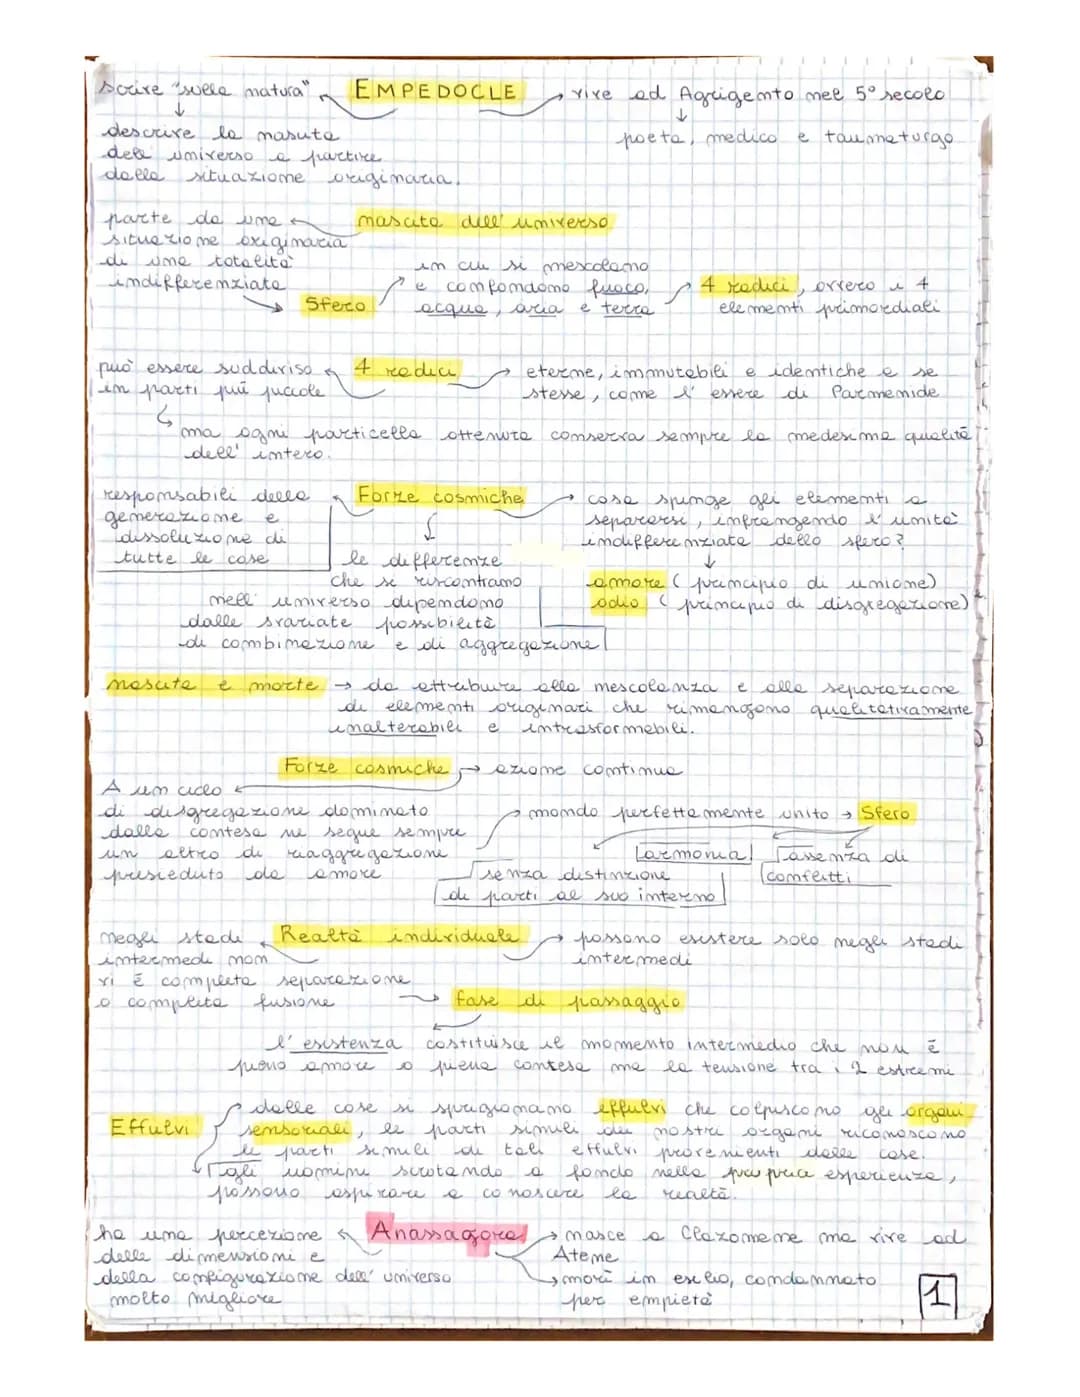 scrive "sulla natura" EMPEDOCLE → vive ad Agrigento nel 5° secolo
↓ ↓
descrive la nascita poeta, medico e taumaturgo
dell universo a partire
dalla situazione originaria.
parte da una nascita dell' universo
situazione originaria
di una totalità in cui si mescolano
indifferenziata e confondono fuoco, 4 radici, ovvero i 4
→ Sfero acqua, aria e terra elementi primordiali
può essere suddiviso 4 radici → eterne, immutabili e identiche a se
in parti più piccole stesse, come l' essere di Parmenide
ma ogni particella ottenuta conserva sempre la medesima qualità
dell' intero.
responsabili della Forze cosmiche → cosa spinge gli elementi a
generazione e separarsi, infrangendo l' unità
dissoluzione di indifferenziata dello sfero?
tutte le cose le differenze ↓
che si riscontrano amore ( principio di unione)
nell' universo dipendono odio ( principio di disgregazione)
dalle svariate possibilità
di combinazione e di aggregazione
nascita e morte → da attribuire alla mescolanza e alla separazione
di elementi originari che rimangono qualitativamente
inalterabili e intrasformabili.
Forze cosmiche → azione continua
A un ciclo
di disgregazione dominato → mondo perfettamente unito → Sfero
dalla contesa ne segue sempre
un altro di riaggregazione armonia assenza di
presieduto da amore senza distinzione conflitti
di parti al suo interno
negli stadi Realtà individuale → possono esistere solo negli stadi
intermedi non intermedi
vi è completa separazione
o completa fusione → fase di passaggio
l' esistenza costituisce il momento intermedio che non è
pieno amore o piena contesa ma la tensione tra i 2 estremi
dalle cose si sprigionano effluvi che colpiscono gli organi
Effluvi sensoriali, le parti simili dei nostri organi riconoscono
le parti simili di tali effluvi provenienti dalle cose.
gli uomini scrutando a fondo nella propria esperienza,
possono aspirare a conoscere la realtà.
ha una percezione Anassagora → nasce a Clazomene ma vive ad
delle dimensioni e Atene
della configurazione dell' universo → morì in esilio, condannato
molto migliore per empietà
1